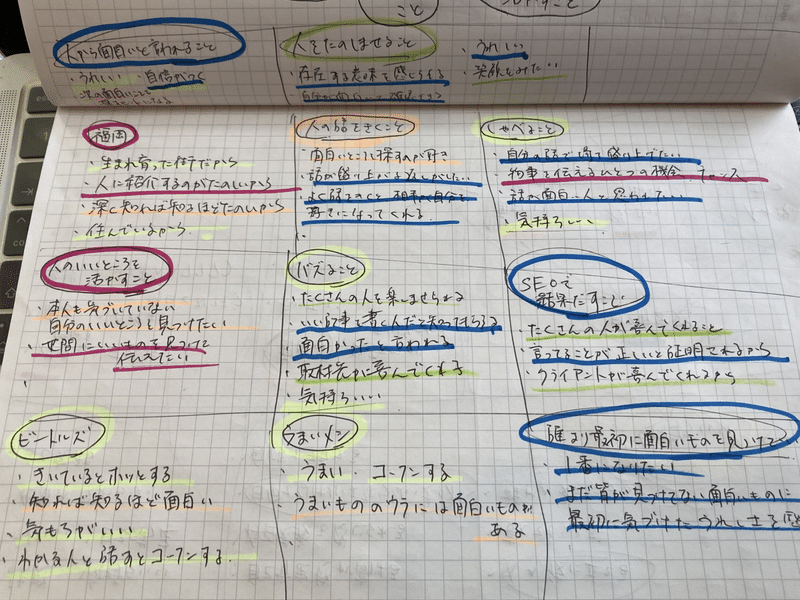 こと
人から面白いと言われること
・うれしい ・自信がつく
人をたのしませること
・存在する意味を感じられる
・うれしい
福岡
・生まれ育った街だから
・人に紹介するのがたのしいから
・深く知れば知るほどたのしいから
・住んでいるから
人の話をきくこと
・面白いところを探すのが好き
・話が盛り上がるとうれしい
・よく話をきくと相手が自分を
好きになってくれる
しゃべること
・自分の話で場を盛り上げたい
・物事を伝えるひとつの機会 チャンス
・話が面白い人と思われたい
・気持ちいい
人のいいところを
活かすこと
・本人も気づいていない
自分のいいところを見つけたい
・世間にいいものを見つけて
伝えたい
バズること
・たくさんの人を楽しませられる
・いい記事を書く人だと知ってもらえる
・面白かったと言われる
・取材先が喜んでくれる
・気持ちいい
SEOで
結果だすこと
・たくさんの人が喜んでくれること
・言ってることが正しいと証明されるから
・クライアントが喜んでくれるから
ビートルズ
・きいているとホッとする
・知れば知るほど面白い
・気もちがいい
・わかる人と話すとコーフンする
うまいメシ
・うまい・コーフンする
・うまいもののウラには面白いものが
ある
誰より最初に面白いものを見つけて
・1番になりたい
・まだ皆が見つけてない面白いものに
最初に気づけたうれしさを